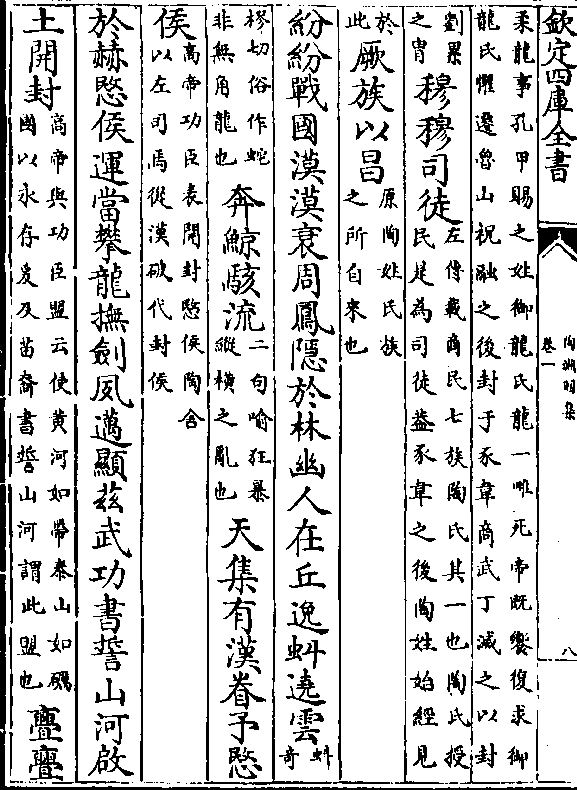 欽定四庫全書
陶淵明集
卷一
八
柔龍事孔甲賜之姓御龍氏龍一雌死帝既饗復求御
龍氏懼遷魯山祝融之後封于豕韋商武丁滅之以封
劉累
之胄
穆穆司徒
左傳載商民七族陶氏其一也陶氏授
民是為司徒葢豕韋之後陶姓始經見
於
此
厥族以昌
原陶姓氏族
之所自來也
紛紛戰國漠漠衰周鳳隱於林幽人在丘逸虯遶雲
虯
奇
樛切俗作蛇
非無角龍也
奔鯨駭流
二句喻狂暴
縱横之亂也
天集有漢眷予愍
侯
高帝功臣表開封愍侯陶舍
以左司馬從漢破代封侯
於赫愍侯運當攀龍撫劍夙邁顯兹武功書誓山河啟
土開封
高帝與功臣盟云使黄河如帶泰山如礪
國以永存爰及苗裔書誓山河謂此盟也
亹亹